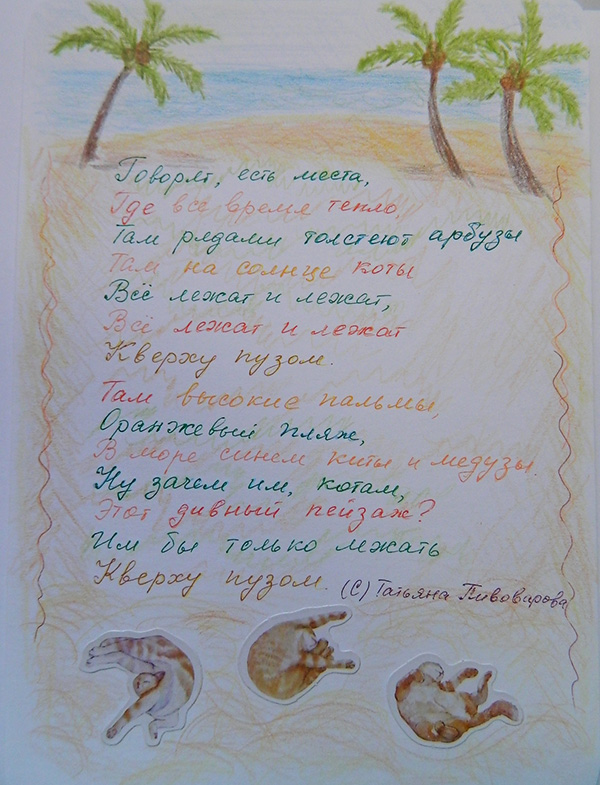 Говорят, есть места,
Где всё время тепло,
Там рядами толстеют арбузы
Там на солнце коты
Всё лежат и лежат,
Всё лежат и лежат
Кверху пузом.
Там высокие пальмы,
Оранжевый пляж,
В море синем киты и медузы.
Ну зачем им, котам,
Этот дивный пейзаж?
Им бы только лежать
Кверху пузом.
(С) Татьяна Пивоварова